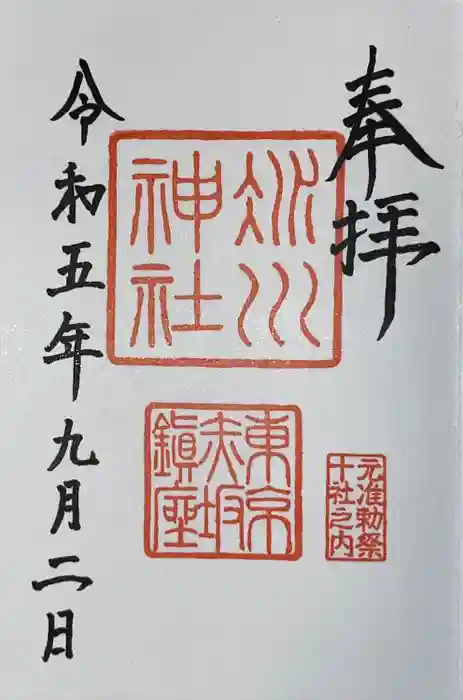 奉拝
氷川
神社
東京
赤坂
鎮座
元准勅祭
十社之内
令和五年九月二日